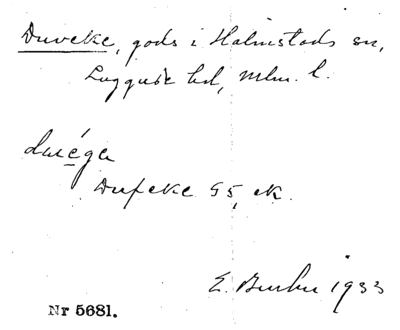 Duveke, gods i Halmstads sn,
Luggude hd, Mlm. l.
duéga
Dufeke G5, ek.
E. Buhu 1933
Nr 5681.